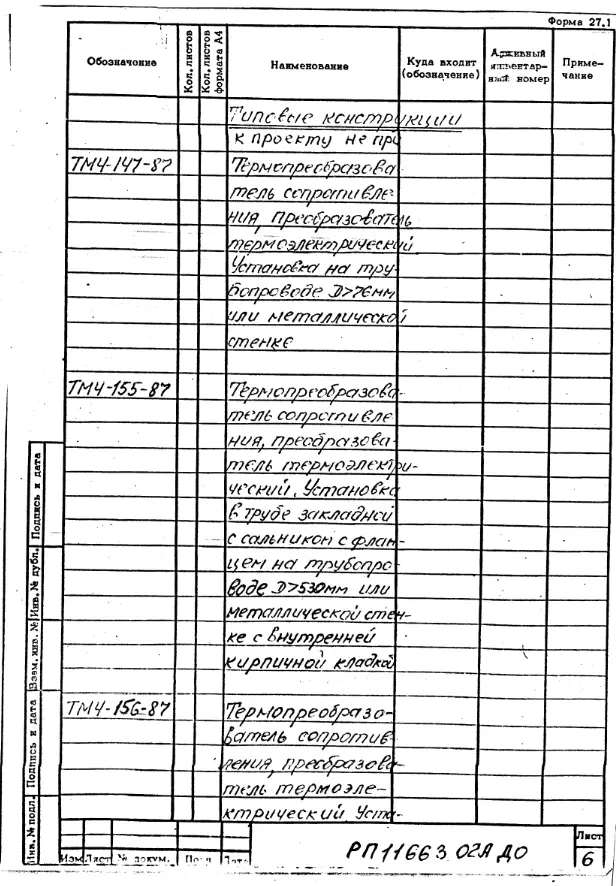 Форма 27.1
Обозначение
Кол. листов
Кол. листов формата А4
Наименование
Куда входит (обозначение)
Архивный инвентарный номер
Примечание
Типовые конструкции
к проекту не при
ТМ4-147-87 Термопреобразова
тель сопротивле-
ния, преобразователь
термоэлектрический
Установка на тру-
бопроводе D>76мм
или металлической
стенке
ТМ4-155-87 Термопреобразова-
тель сопротивле
ния, преобразова-
тель термоэлектри-
ческий. Установка
в трубе закладной
с сальником с флан-
цем на трубопро
воде D>530мм или
металлической стен-
ке с внутренней
кирпичной кладкой
ТМ4-156-87 Термопреобразо-
ватель сопротив-
ления, преобразова-
тель термоэле-
ктрический Уста-
Инв. № подл.
Подпись и дата
Взам. инв. №
Инв. № дубл.
Подпись и дата
Изм Лист № докум. Подп Дата
РП11663.02Л ДО
Лист
6